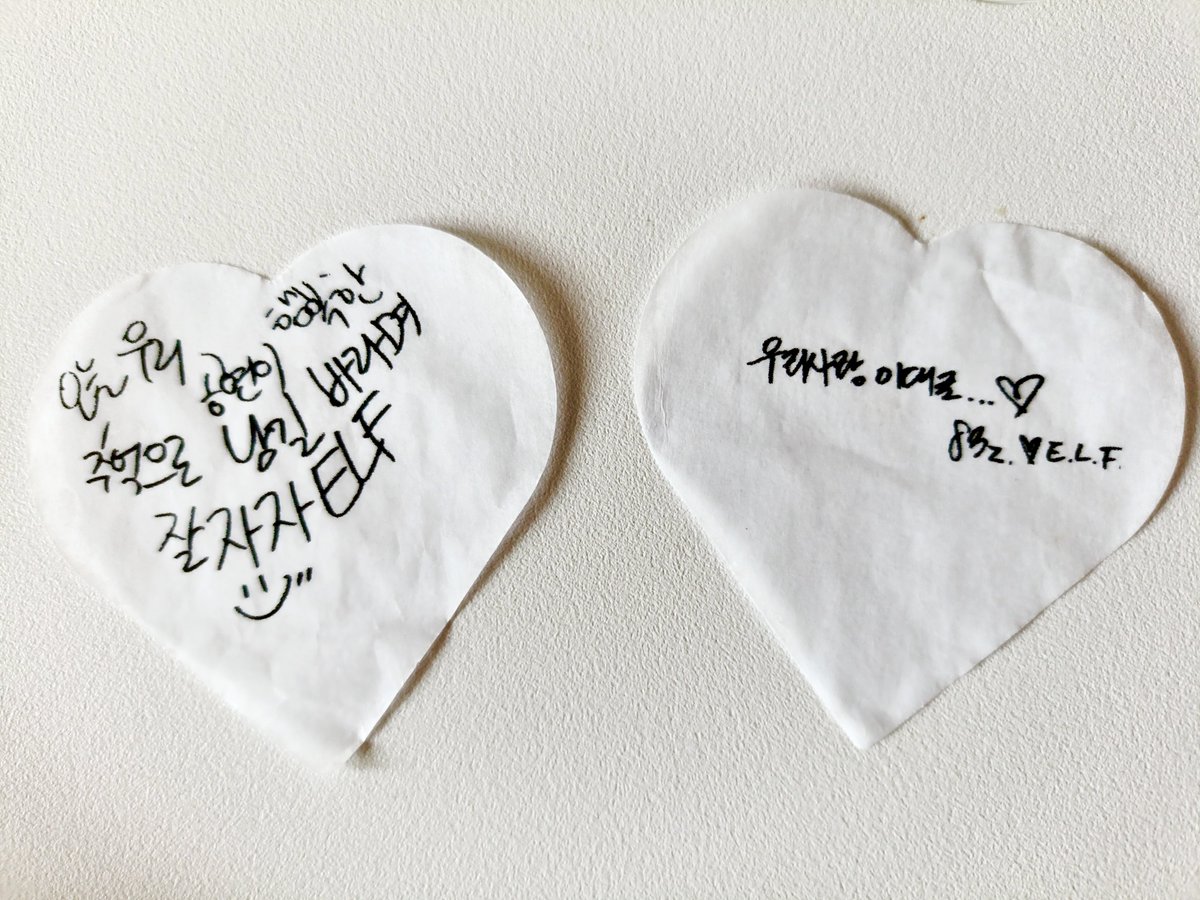 오늘 우리 공연이 행복한
추억으로 남길 바라며
잘자자 ELF
우리사랑 이대로...♡
83z.♥E.L.F.